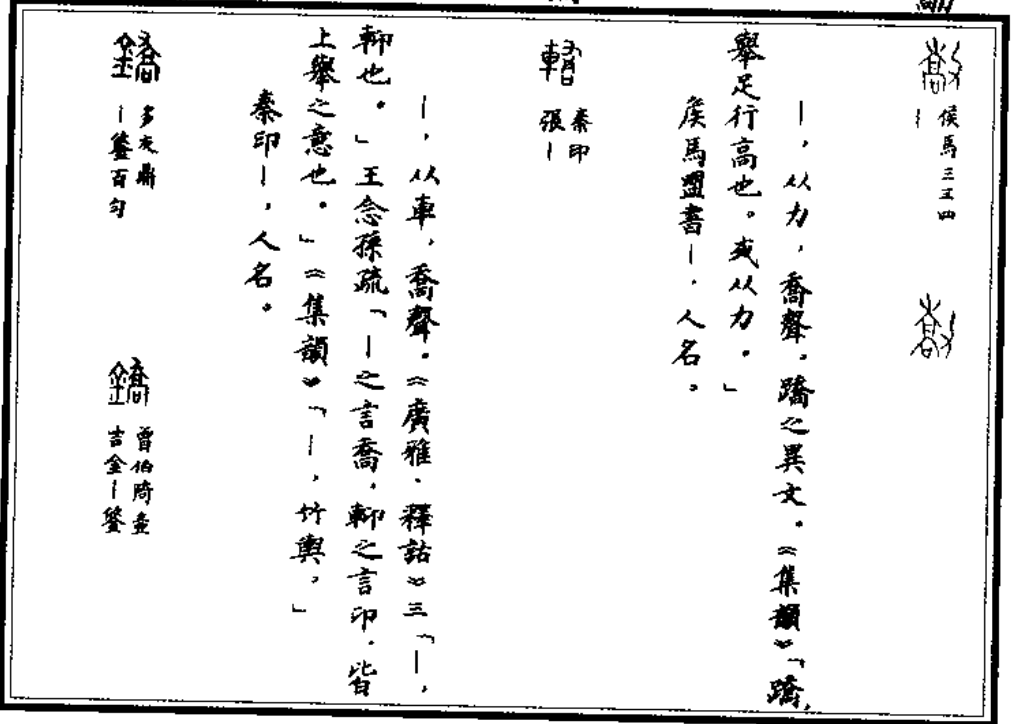 侯馬三三四
丨
丨，从力，喬聲。蹻之異文。《集韻》「蹻，
舉足行高也。或从力。」
侯馬盟書丨，人名。
秦印
張丨
丨，从車，喬聲。《廣雅·釋詁》三「丨，
軓也。」王念孫疏「丨之言喬，軓之言卬，皆
上舉之意也。」《集韻》「丨，竹輿。」
秦印丨，人名。
多友鼎
丨鋚百勻
曾伯陭壺
吉金丨鋚